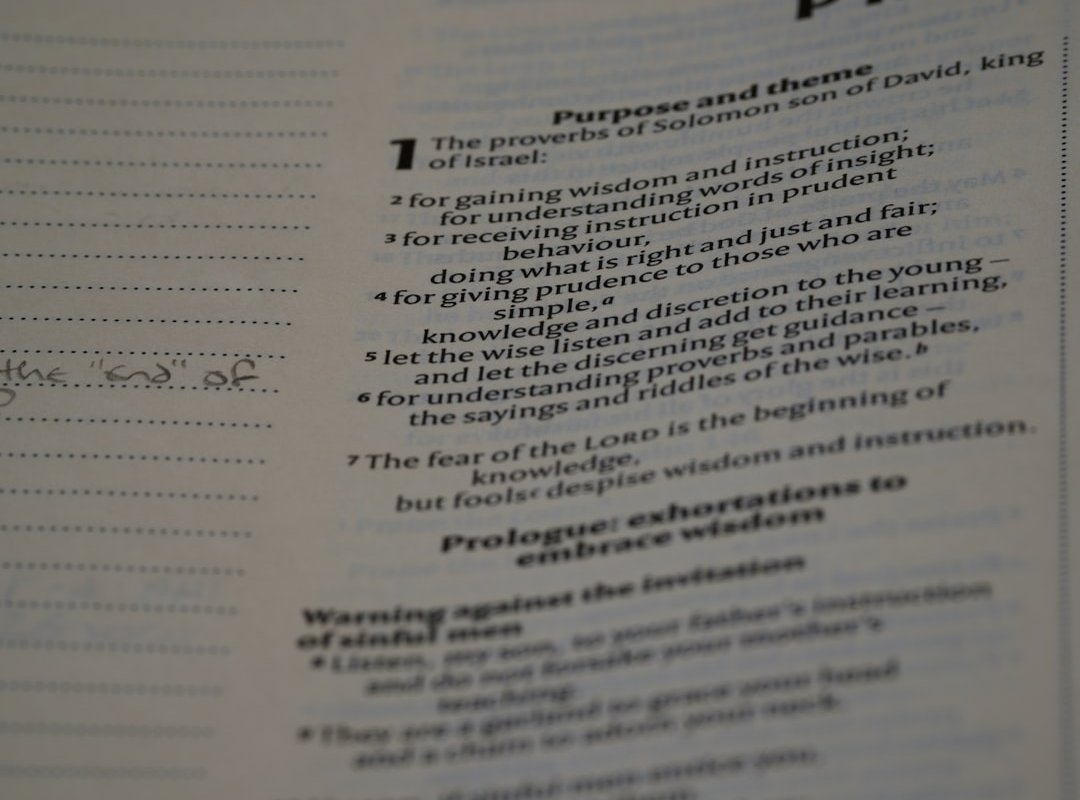 the "end" of
Purpose and theme
1 The proverbs of Solomon son of David, king
of Israel:
2 for gaining wisdom and instruction;
for understanding words of insight;
3 for receiving instruction in prudent
behaviour,
doing what is right and just and fair;
4 for giving prudence to those who are
simple,a
knowledge and discretion to the young –
5 let the wise listen and add to their learning,
and let the discerning get guidance –
6 for understanding proverbs and parables,
the sayings and riddles of the wise.b
7 The fear of the LORD is the beginning of
knowledge,
but foolsc despise wisdom and instruction.
Prologue: exhortations to
embrace wisdom
Warning against the invitation
of sinful men
8 Listen, my son, to your father's instruction
and do not forsake your mother's
teaching.
9 They are a garland to grace your head
and a chain to adorn your neck.
sinful men entice you,